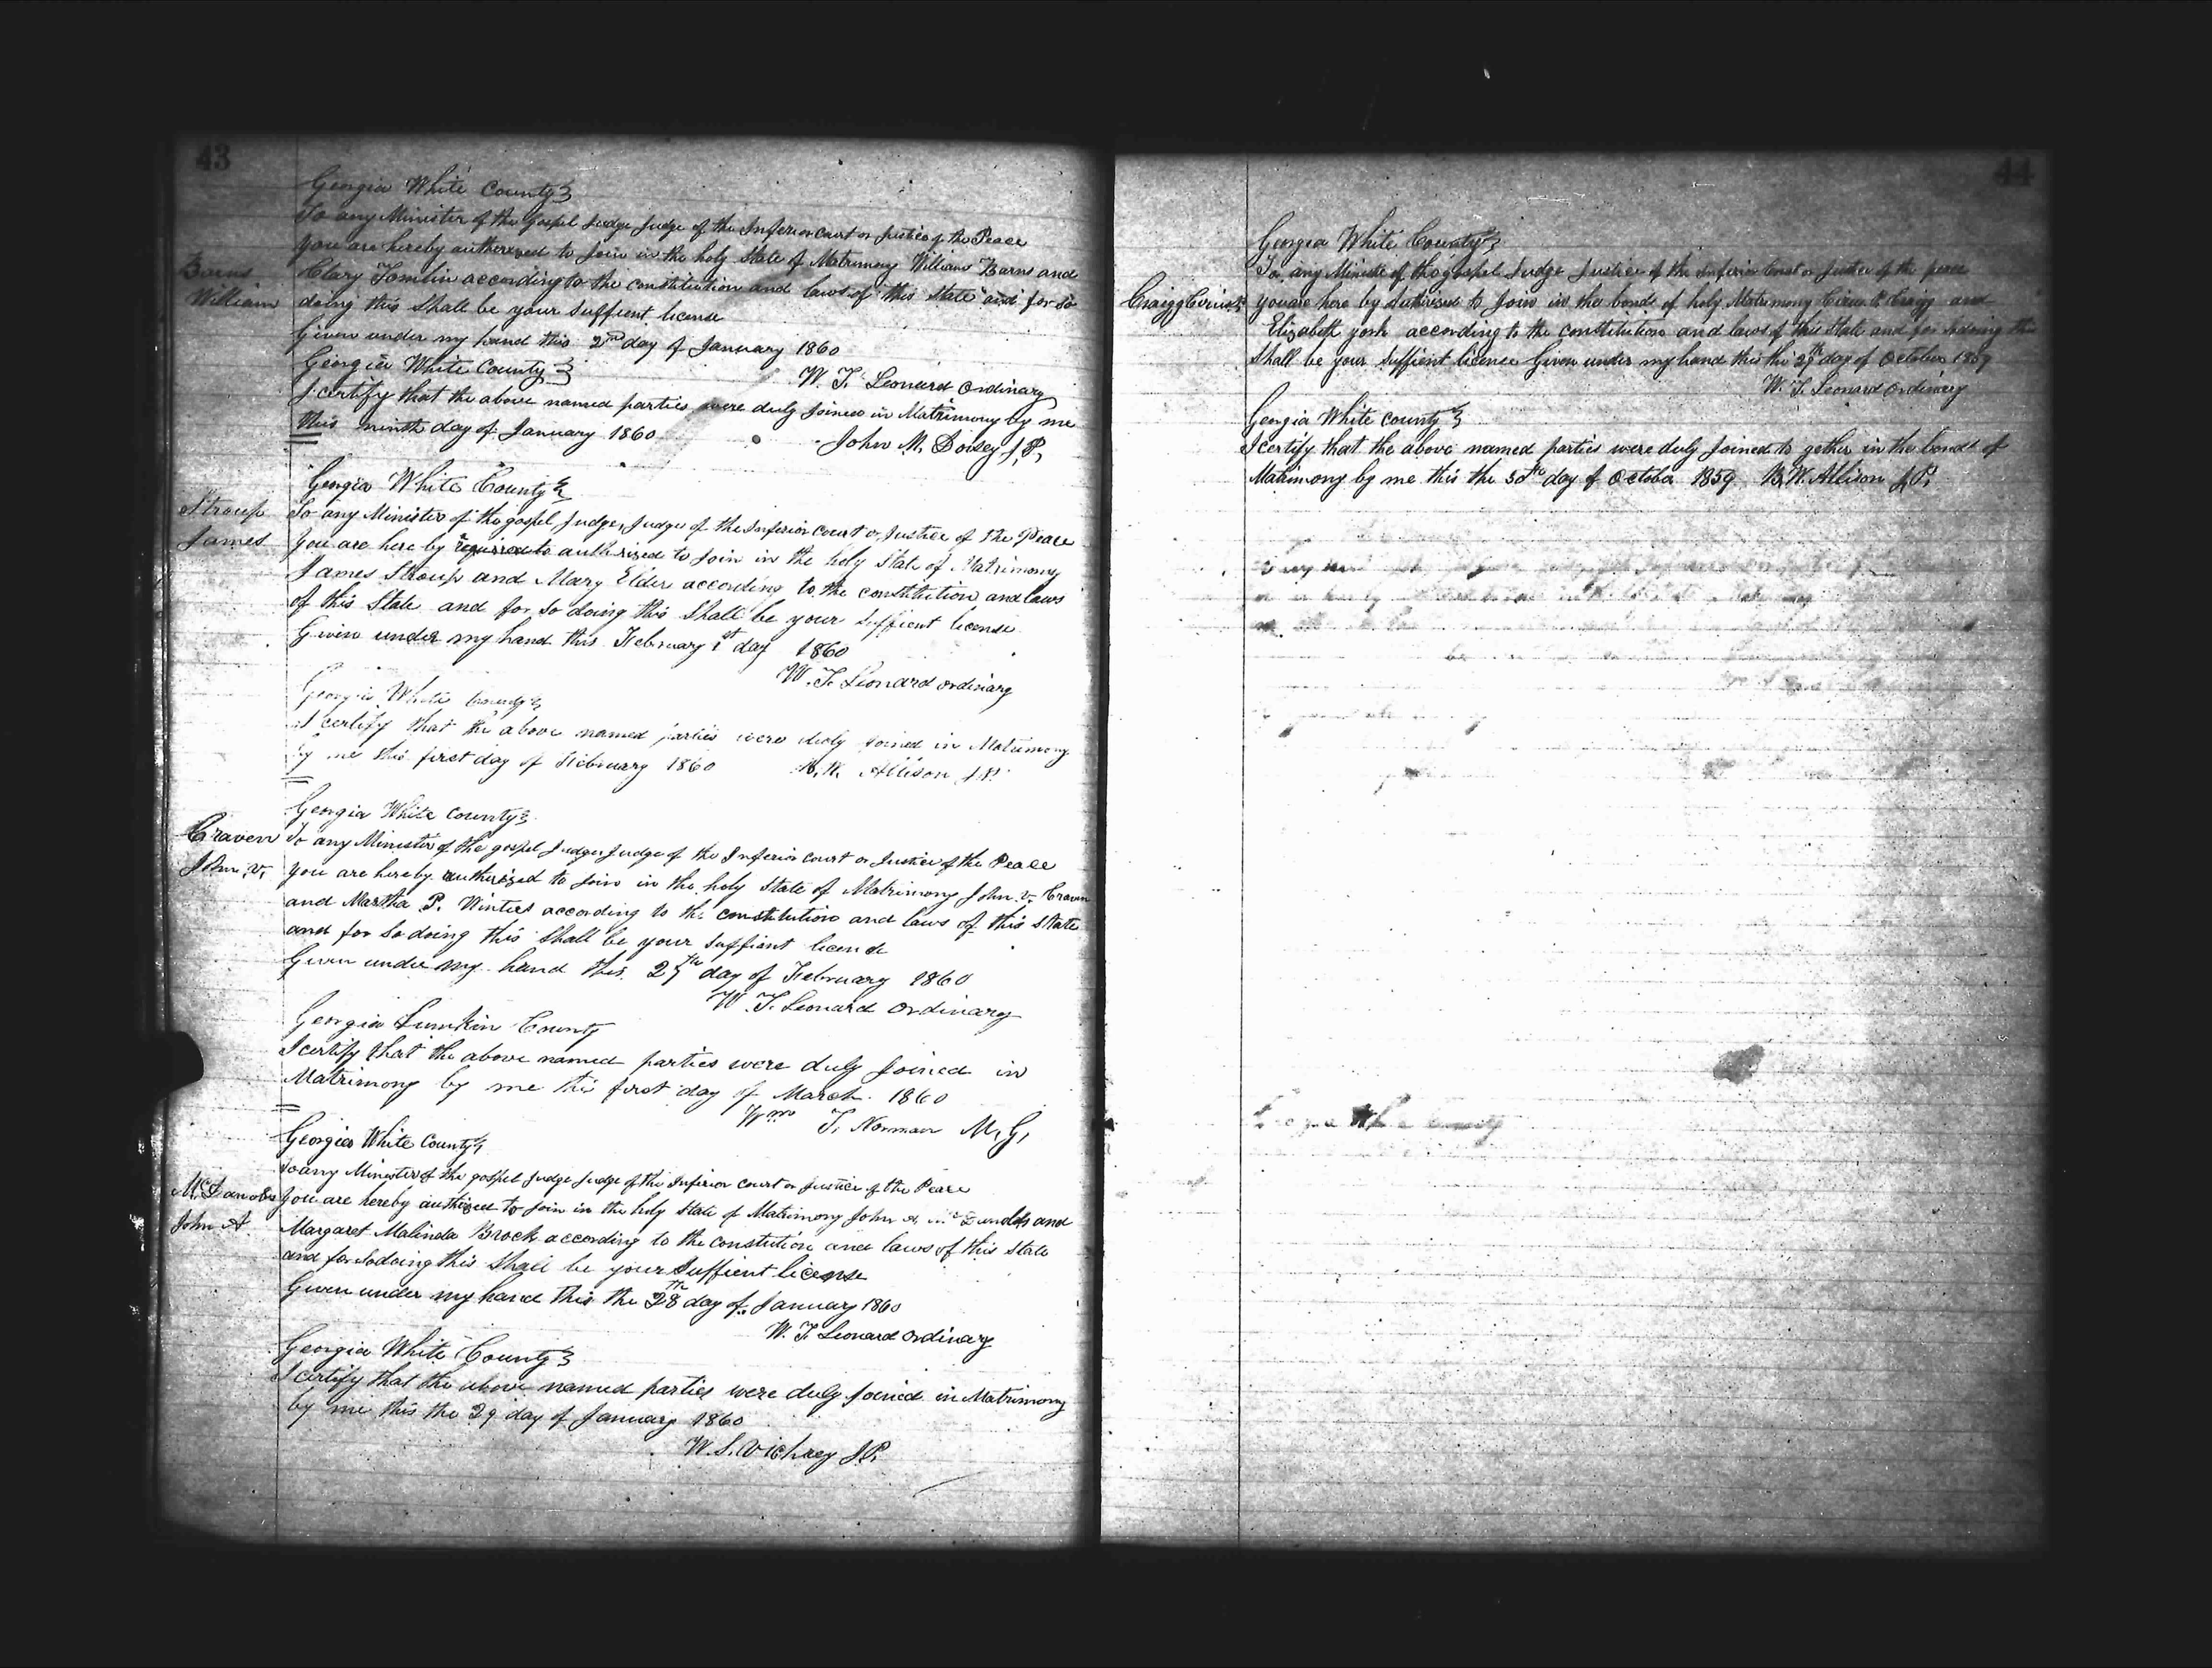 43
Georgia White County
To any Minister of the Gospel Judge Judge of the Inferior Court or Justice of the Peace
you are hereby authorised to Join in the holy State of Matrimony William Barns and
Barns
William
Clary Tomlin according to the constitution and laws of this State and for so
doing this Shall be your Suffient license
Given under my hand this 2nd day of January 1860
W. T. Leonard Ordinary
Georgia White County
I certify that the above named parties were duly Joined in Matrimony by me
this ninth day of January 1860
John M. Dorsey J.P.
Georgia White County
Stroup
James
To any Minister of the gospel, Judge, Judge of the Inferior Court or Justice of the Peace
you are here by required to authorised to Join in the holy State of Matrimony
James Stroup and Mary Elder according to the constitution and laws
of this State and for so doing this Shall be your Suffient license
Given under my hand this February 1st day 1860
W. T. Leonard ordinary
Georgia White County
I certify that the above named parties were duly Joined in Matrimony
by me this first day of February 1860
Allison J.P.
Georgia White County
Craven
John V.
To any Minister of the gospel Judge Judge of the Inferior Court or Justice of the Peace
you are hereby authorised to Join in the holy State of Matrimony John V. Craven
and Martha P. Winters according to the constitution and laws of this State
and for So doing this Shall be your suffient licence
Given under my hand this 27th day of February 1860
W. T. Leonard Ordinary
Georgia Lumkin County
I certify that the above named parties were duly Joined in
Matrimony by me this first day of March 1860
Wm T. Norman M.G.
Georgia White County
To any Minister of the gospel Judge Judge of the Inferior Court or Justice of the Peace
John A.
you are hereby authised to Join in the holy State of Matrimony John A. and
Margaret Malinda Brock according to the constution and laws of this State
and for So doing this Shall be your Suffient license
Given under my hand this the 28th day of January 1860
W. T. Leonard Ordinary
Georgia White County
I certify that the above named parties were duly Joined in Matrimony
by me this the 29 day of January 1860
W. S. Vichrey J.P.
44
Georgia White County
To any Ministe of the gospel Judge Justice of the Inferior Court or Justice of the peace
you are here by Autorised to Join in the bond of holy Matrimony Cragg and
Elizabeth york according to the constitution and laws of this State and for so doing this
Shall be your Suffient licence Given under my hand this the day of October 1859
W. T. Leonard Ordinary
Georgia White County
I certify that the above named parties were duly Joined to gether in the bonds of
Matrimony by me this the 30th day of October 1859 B. W. Allison J.P.
Georgia White County